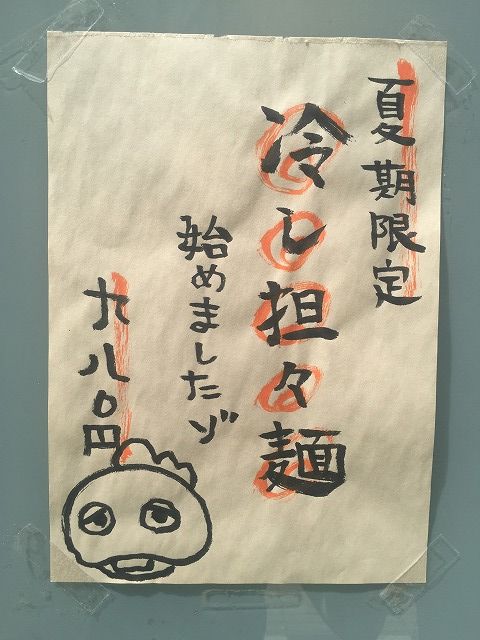 夏期限定
冷し担々麺
始めましたゾ
九八〇円